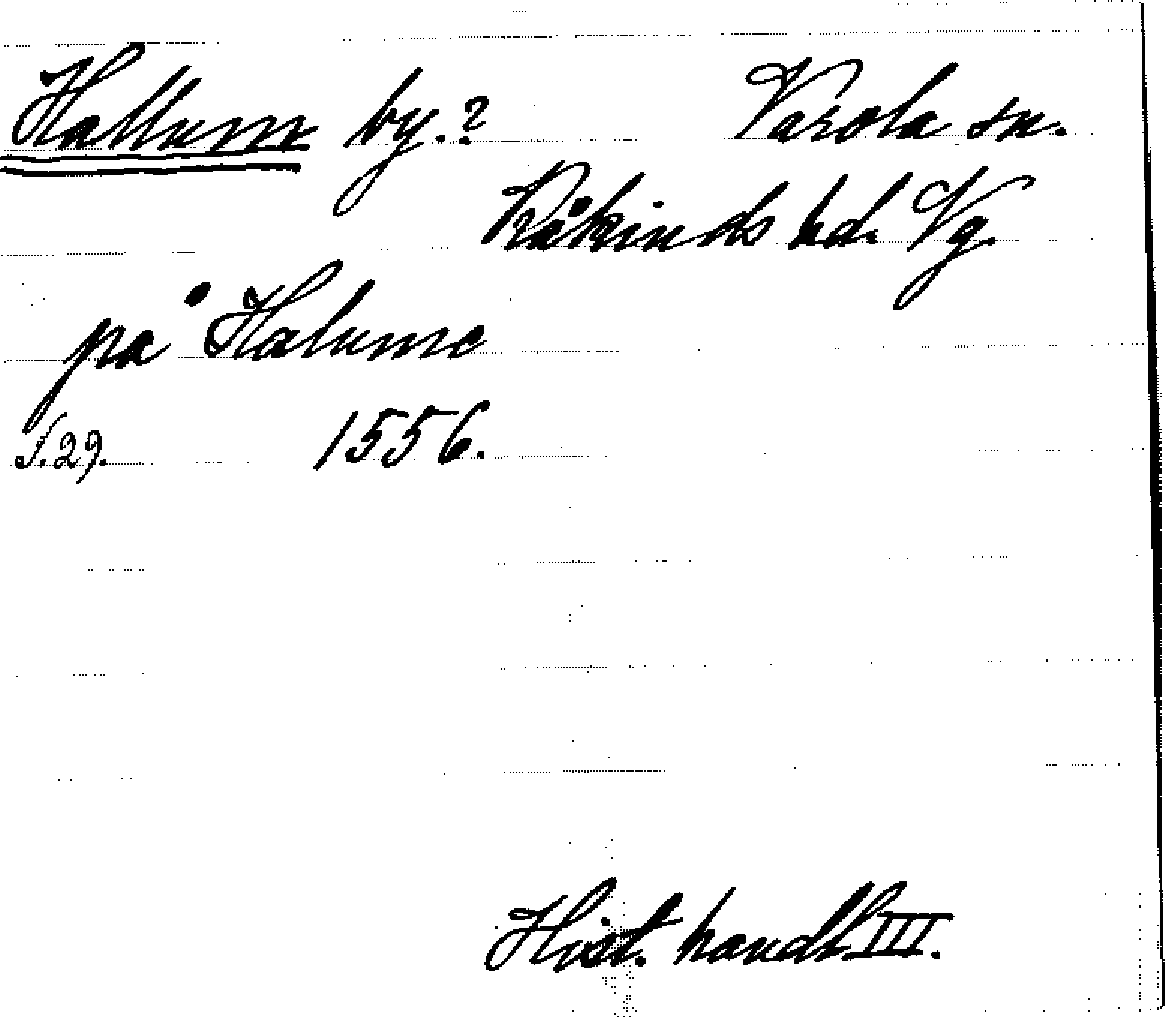 Hallum by.? Varola sn.
Kåkinds hd. Vg.
på Halume
S.29. 1556.
Hist. handl. III.